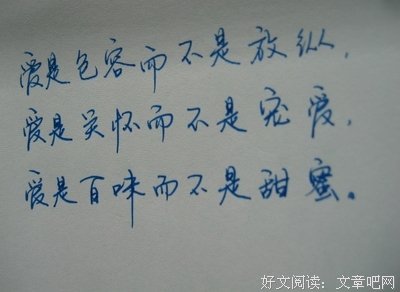 爱是包容而不是放纵，
爱是关怀而不是宠爱，
爱是百味而不是甜蜜。
好文阅读：文章吧网